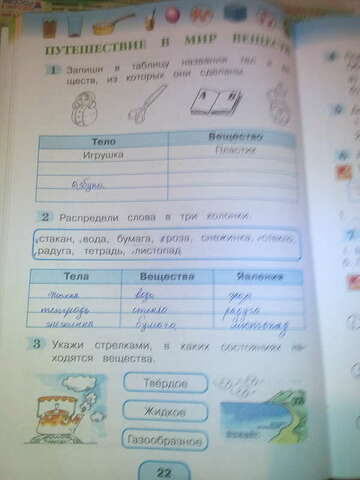 ПУТЕШЕСТВИЕ В МИР ВЕЩЕСТВ
1 Запиши в таблицу названия тел и ве-
ществ, из которых они сделаны.
А Б
Тело Вещество
Игрушка Пластик
Азбука
2 Распредели слова в три колонки.
стакан, вода, бумага, гроза, снежинка, стекло,
радуга, тетрадь, листопад
Тела Вещества Явления
стакан вода гроза
тетрадь стекло радуга
снежинка бумага листопад
3 Укажи стрелками, в каких состояниях на-
ходятся вещества.
Твёрдое
Жидкое
Газообразное
22